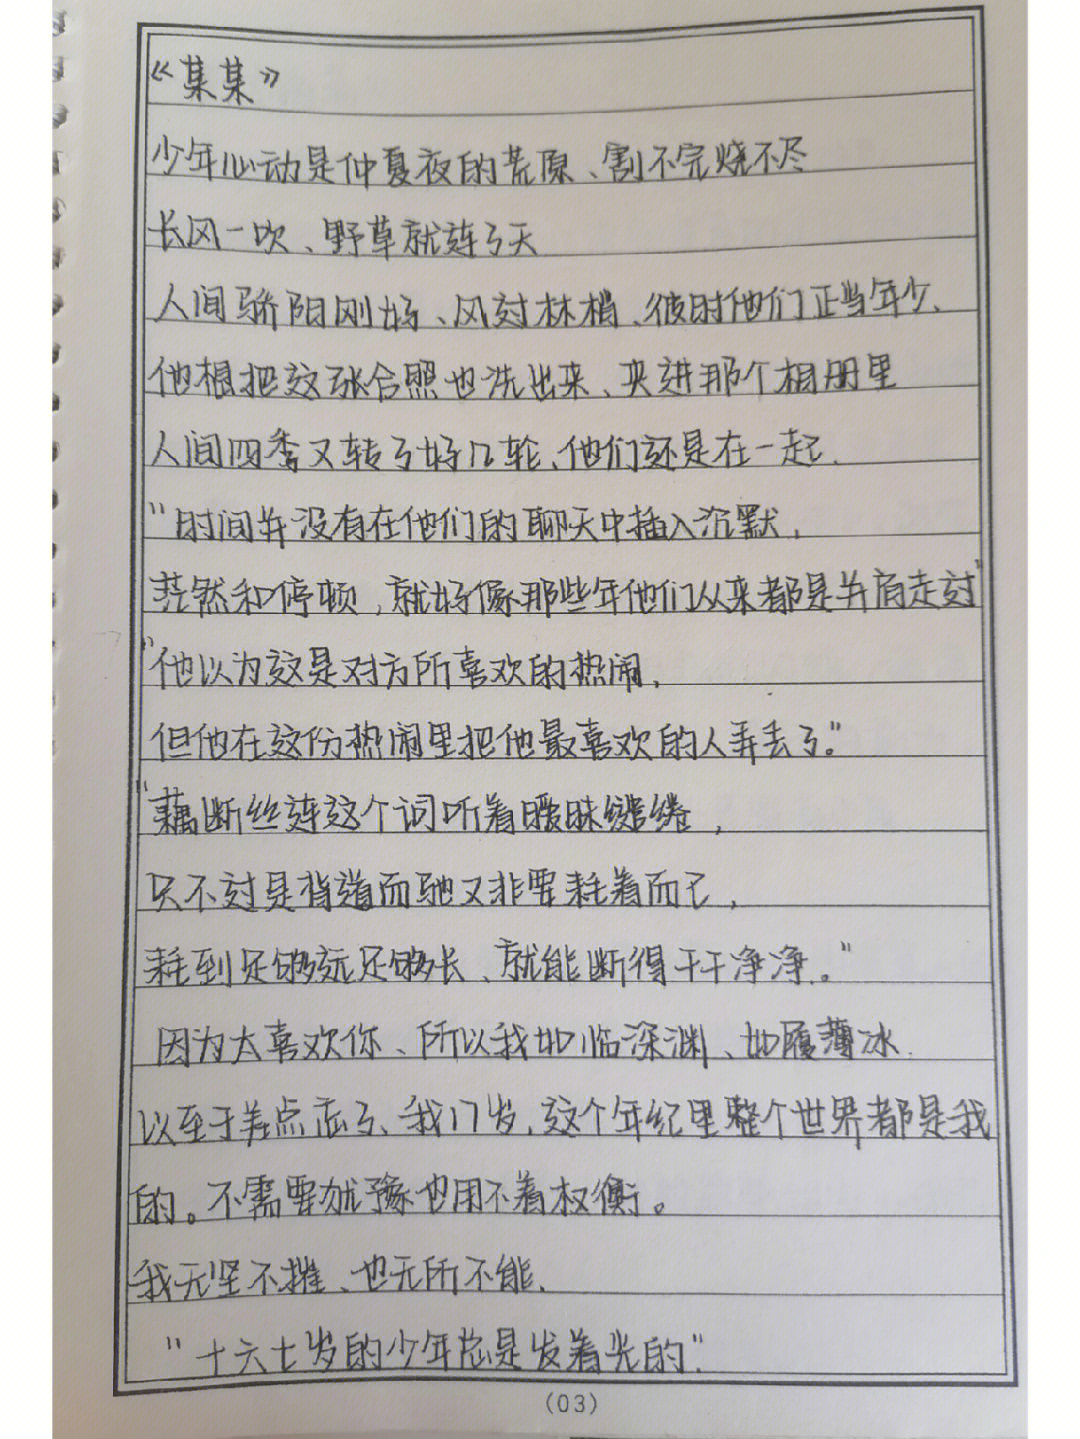 《某某》
少年心动是仲夏夜的荒原、割不完烧不尽
长风一吹、野草就连了天
人间骄阳刚好、风过林梢、彼时他们正当年少、
他想把这张合照也洗出来、夹进那个相册里
人间四季又转了好几轮、他们还是在一起.
"时间并没有在他们的聊天中插入沉默，
茫然和停顿，就好像那些年他们从来都是并肩走过"
"他以为这是对方所喜欢的热闹，
但他在这份热闹里把他最喜欢的人弄丢了。"
"藕断丝连这个词听着暧昧缱绻，
只不过是背道而驰又非要耗着而已，
耗到足够远足够长、就能断得干干净净。"
因为太喜欢你、所以我如临深渊、如履薄冰.
以至于差点忘了、我17岁，这个年纪里整个世界都是我
的。不需要犹豫也用不着权衡。
我无坚不摧、也无所不能.
"十六七岁的少年总是发着光的".
(03)